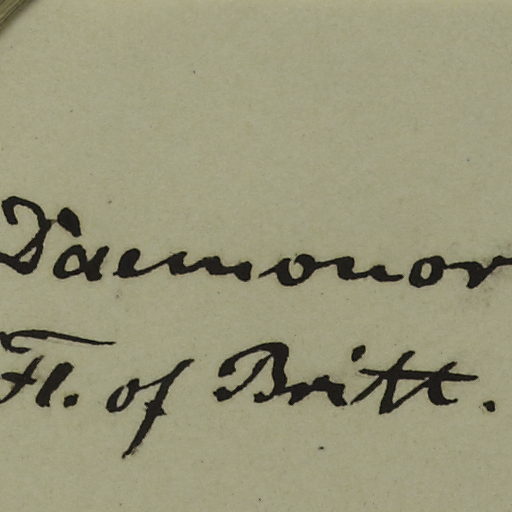 Daemonor
Fl. of Britt.